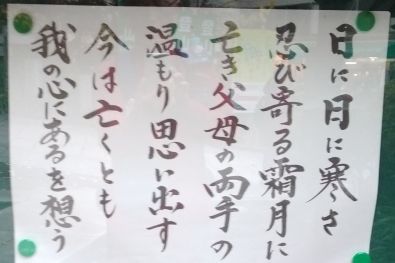 日に月に寒さ
忍び寄る霜月に
亡き父母の両手の
温もり思い出す
今は亡くとも
我の心にあるを想う